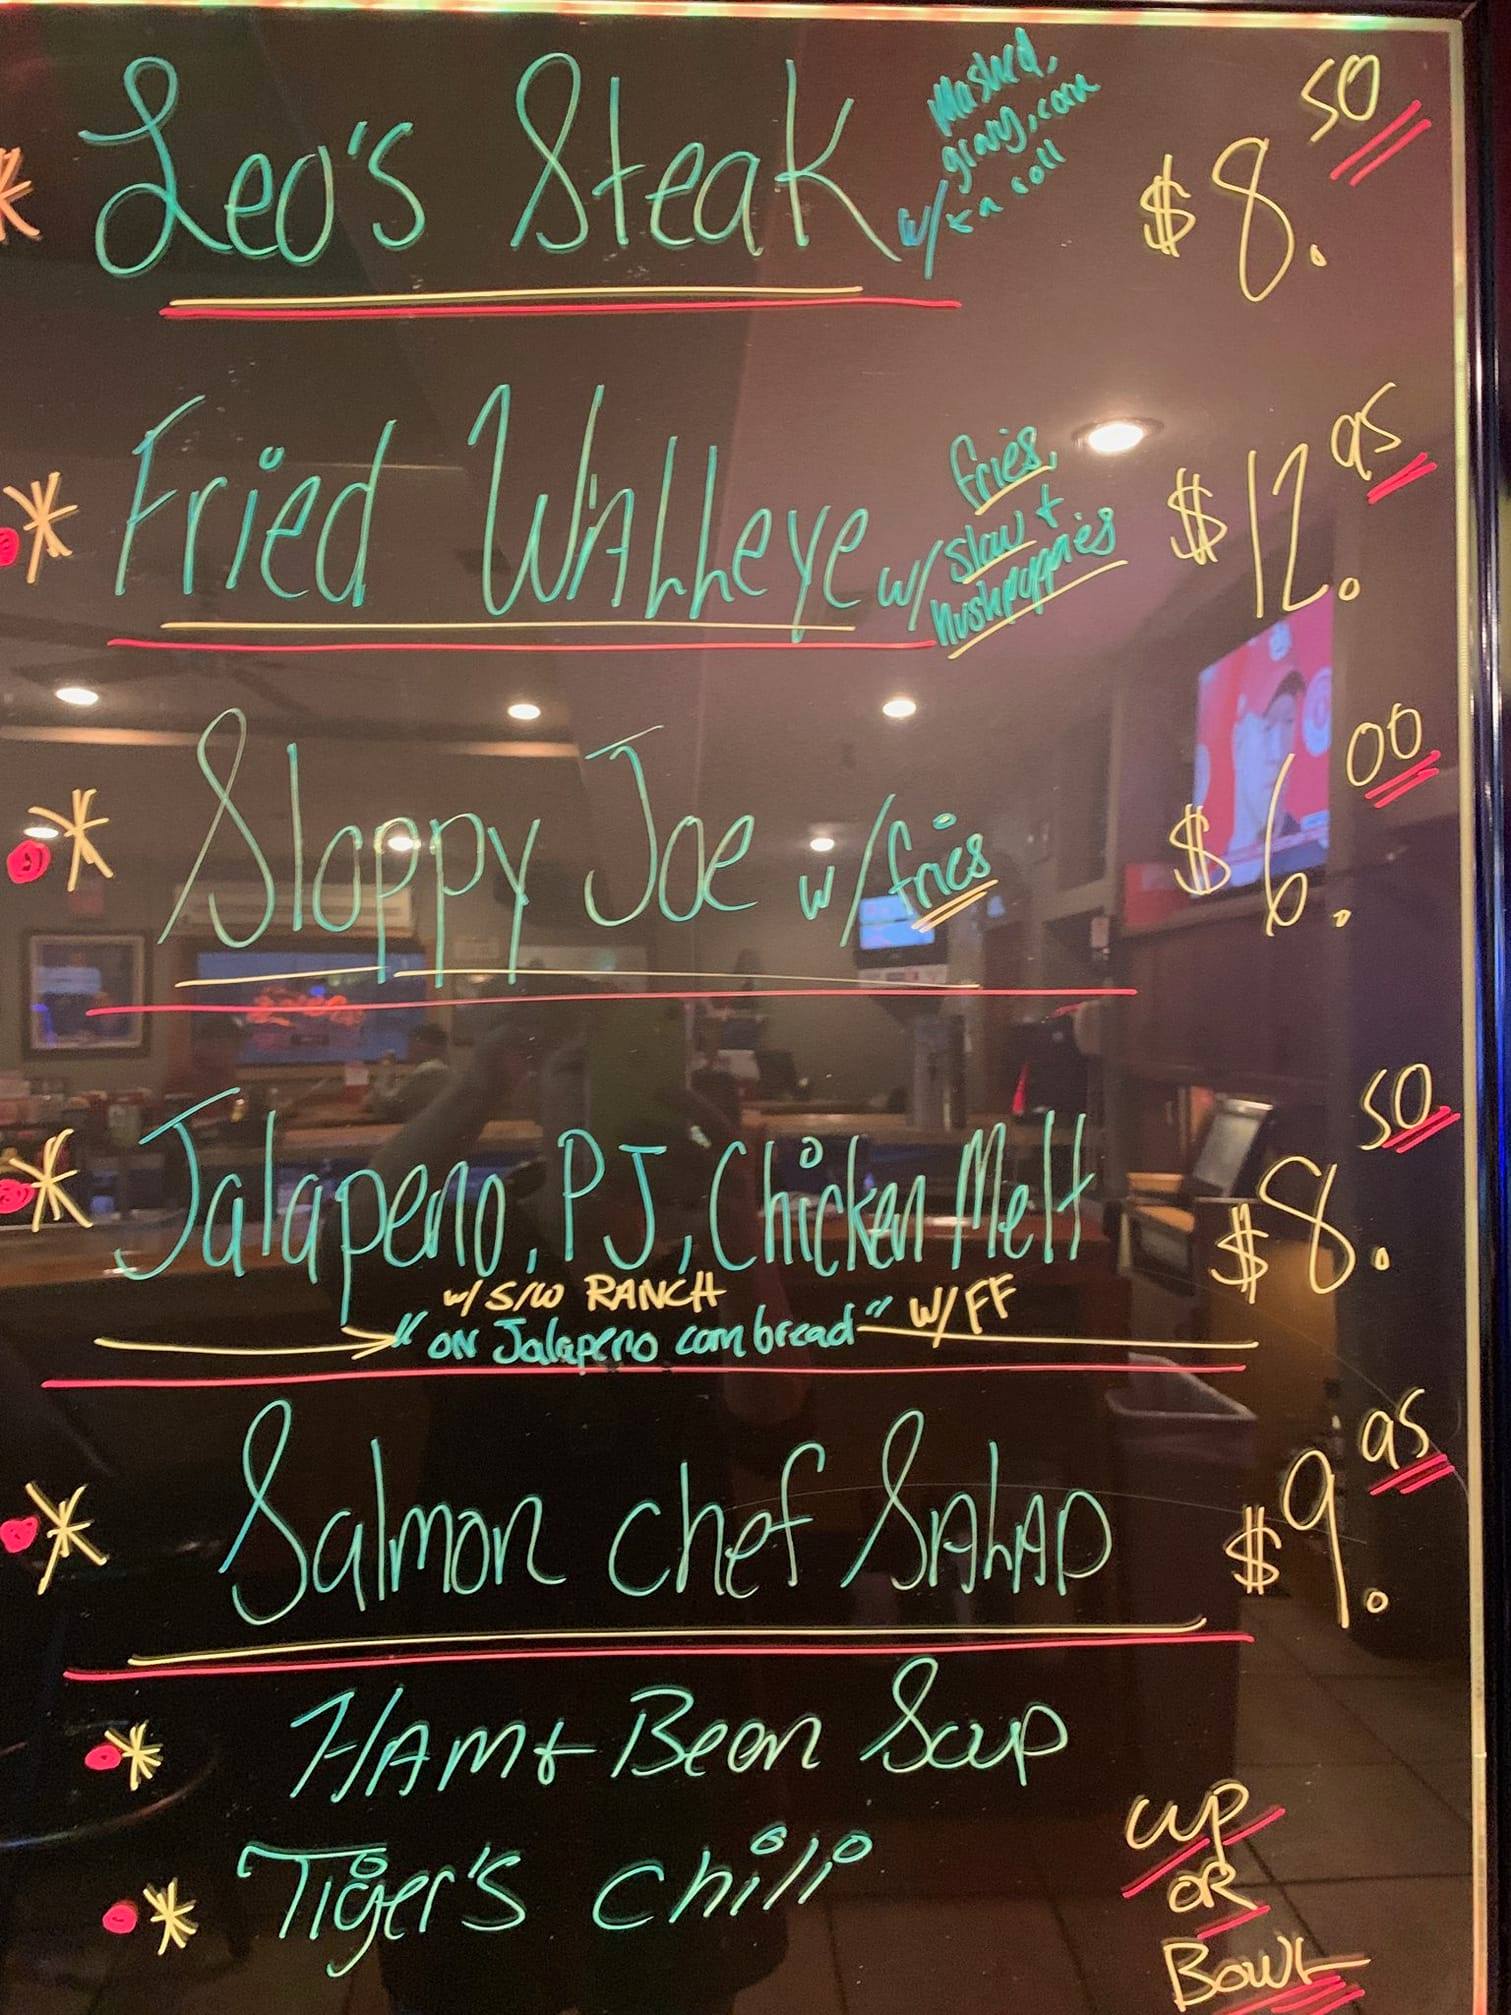 Leo's Steak w/ Mashed, gravy, corn + a roll $8.50
Fried Walleye w/ fries, slaw + hushpuppies $12.95
Sloppy Joe w/ fries $6.00
Jalapeno, PJ, Chicken Melt $8.50
w/ S/W RANCH
"ON Jalapeno cornbread" W/FF
Salmon Chef SALAD $9.95
HAM + Bean Soup
Tiger's Chili
CUP
OR
BOWL